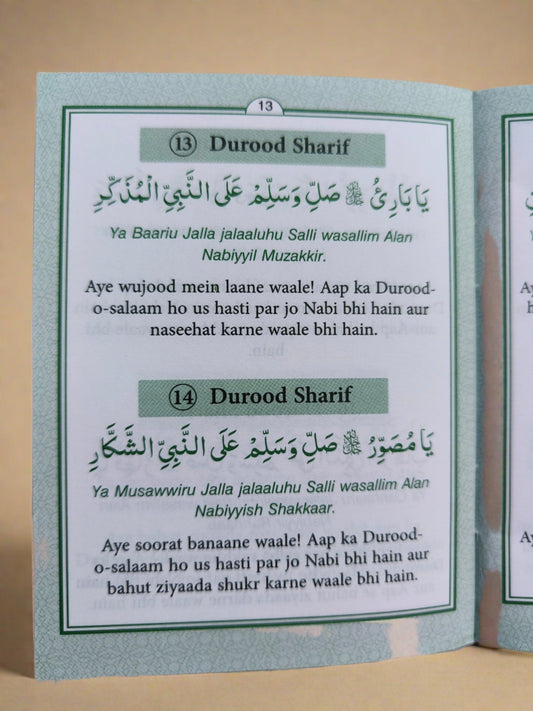 13
13 Durood Sharif
يَا بَارِئُ ﷻ صَلِّ وَسَلِّمْ عَلَى النَّبِيِّ الْمُذَكِّرِ
Ya Baariu Jalla jalaaluhu Salli wasallim Alan
Nabiyyil Muzakkir.
Aye wujood mein laane waale! Aap ka Durood-
o-salaam ho us hasti par jo Nabi bhi hain aur
naseehat karne waale bhi hain.
14 Durood Sharif
يَا مُصَوِّرُ ﷻ صَلِّ وَسَلِّمْ عَلَى النَّبِيِّ الشَّكَّارِ
Ya Musawwiru Jalla jalaaluhu Salli wasallim Alan
Nabiyyish Shakkaar.
Aye soorat banaane waale! Aap ka Durood-
o-salaam ho us hasti par jo Nabi bhi hain aur
bahut ziyaada shukr karne waale bhi hain.